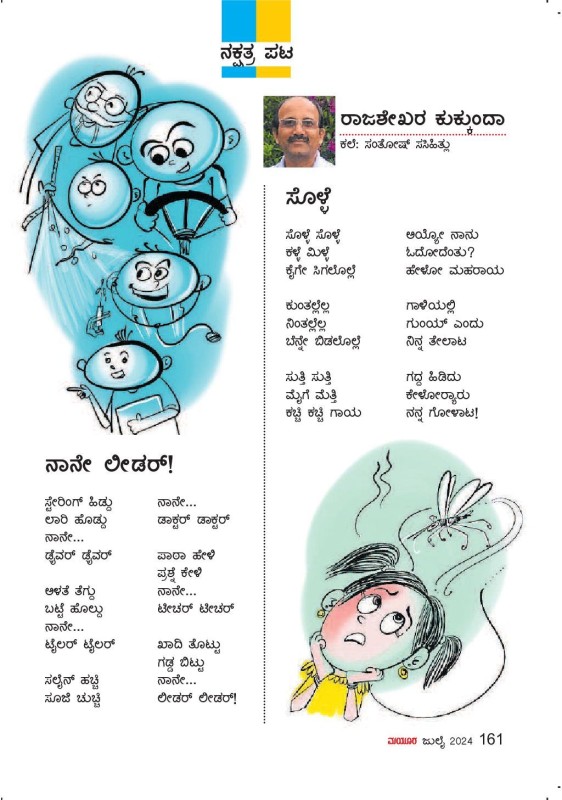 ನಕ್ಷತ್ರ ಪಟ
ರಾಜಶೇಖರ ಕುಕ್ಕುಂದಾ
ಕಲೆ: ಸಂತೋಷ್ ಸಸಿಹಿತ್ಲು
ಸೊಳ್ಳೆ
ಸೊಳ್ಳೆ ಸೊಳ್ಳೆ
ಕಳ್ಳೆ ಮಿಳ್ಳೆ
ಕೈಗೇ ಸಿಗಲೊಲ್ಲೆ
ಕುಂತಲ್ಲೆಲ್ಲ
ನಿಂತಲ್ಲೆಲ್ಲ
ಬೆನ್ನೇ ಬಿಡಲೊಲ್ಲೆ
ಸುತ್ತಿ ಸುತ್ತಿ
ಮೈಗೆ ಮೆತ್ತಿ
ಕಚ್ಚಿ ಕಚ್ಚಿ ಗಾಯ
ಅಯ್ಯೋ ನಾನು
ಓದೋದೆಂತು?
ಹೇಳೋ ಮಹರಾಯ
ಗಾಳಿಯಲ್ಲಿ
ಗುಂಯ್ ಎಂದು
ನಿನ್ನ ತೇಲಾಟ
ಗದ್ದ ಹಿಡಿದು
ಕೇಳೋರ‍್ಯಾರು
ನನ್ನ ಗೋಳಾಟ!
ನಾನೇ ಲೀಡರ್!
ಸ್ಟೇರಿಂಗ್ ಹಿಡ್ದು
ಲಾರಿ ಹೊಡ್ದು
ನಾನೇ...
ಡ್ರೈವರ್ ಡ್ರೈವರ್
ಅಳತೆ ತೆಗ್ದು
ಬಟ್ಟೆ ಹೊಲ್ದು
ನಾನೇ...
ಟೈಲರ್ ಟೈಲರ್
ಸಲೈನ್ ಹಚ್ಚಿ
ಸೂಜಿ ಚುಚ್ಚಿ
ನಾನೇ...
ಡಾಕ್ಟರ್ ಡಾಕ್ಟರ್
ಪಾಠಾ ಹೇಳಿ
ಪ್ರಶ್ನೆ ಕೇಳಿ
ನಾನೇ...
ಟೀಚರ್ ಟೀಚರ್
ಖಾದಿ ತೊಟ್ಟು
ಗಡ್ಡ ಬಿಟ್ಟು
ನಾನೇ...
ಲೀಡರ್ ಲೀಡರ್!
ಮಯೂರ ಜುಲೈ 2024 161